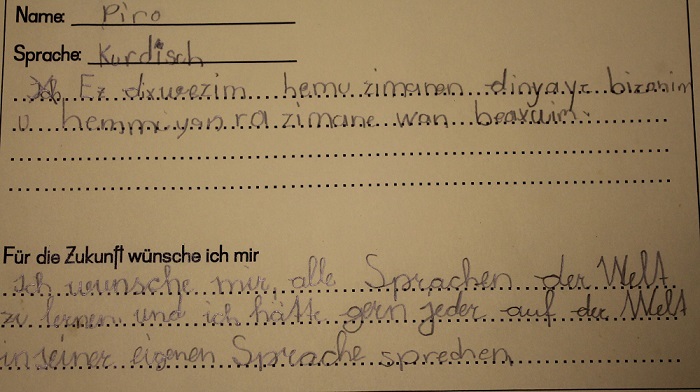 Name: Piro
Sprache: Kurdisch
Ez dxwezim hemu zimanen dinyaye bizanim
u hemmiyan ra zimane wan beaxwim.
Für die Zukunft wünsche ich mir
Ich wünsche mir, alle Sprachen der Welt
zu lernen und ich hätte gern jeder auf der Welt
in seiner eigenen Sprache sprechen.